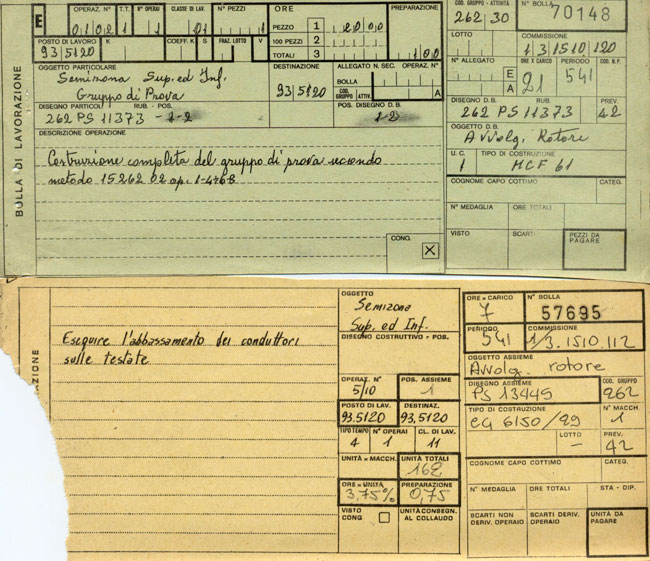 E
OPERAZ. N° T.T. N° OPERAI CLASSE DI LAV. N° PEZZI
01021 1 01 1
ORE
PREPARAZIONE
PEZZO 1 2000
100 PEZZI 2
TOTALI 3 100
COD. GRUPPO - ATTIVITÀ
262/30
N° BOLLA
70148
POSTO DI LAVORO K COEFF. K S FRAZ. LOTTO V
93/5120
LOTTO
COMMISSIONE
1/3/1510/120
OGGETTO PARTICOLARE
Semizona Sup. ed Inf.
Gruppo di Prova
DESTINAZIONE
93/5120
ALLEGATO N. SEC. OPERAZ. N°
BOLLA
COD. GRUPPO/ATTIV. A
N° ALLEGATO
E
A
ORE X CARICO
21
PERIODO
541
COD. N.P.
DISEGNO PARTICOL. RUB. - POS.
262 PS 11373 - 1-2
POS. DISEGNO D.B.
1-2
DISEGNO D. B.
262 PS 11373
PREV.
42
DESCRIZIONE OPERAZIONE
Costruzione completa del gruppo di prova secondo
metodo 15262 02 op. 1-4-6-8
OGGETTO D.B.
Avvolg. Rotore
U. C.
1
TIPO DI COSTRUZIONE
MCF 61
COGNOME CAPO COTTIMO CATEG.
N° MEDAGLIA ORE TOTALI
VISTO SCARTI PEZZI DA PAGARE
CONG.
X
BOLLA DI LAVORAZIONE
AZIONE
Eseguire l'abbassamento dei conduttori
sulle testate
OGGETTO
Semizona
Sup. ed Inf.
DISEGNO COSTRUTTIVO - POS.
OPERAZ. N°
5/10
POS. ASSIEME
1
POSTO DI LAV.
93.5120
DESTINAZ.
93.5120
TIPO TEMPO N° OPERAI CL. DI LAV.
4 1 11
UNITÀ x MACCH. UNITÀ TOTALI
162
ORE x UNITÀ
3,75%
PREPARAZIONE
0,75
VISTO CONG
UNITÀ CONSEGN. AL COLLAUDO
ORE x CARICO
7
N° BOLLA
57695
PERIODO
541
COMMISSIONE
1/3.1510.112
OGGETTO ASSIEME
Avvolg. rotore
DISEGNO ASSIEME
PS 13445
COD. GRUPPO
262
TIPO DI COSTRUZIONE
CG 6150/29
N° MACCH.
1
LOTTO
-
PREV.
42
COGNOME CAPO COTTIMO CATEG.
N° MEDAGLIA ORE TOTALI STA - DIP.
SCARTI NON DERIV. OPERAIO
SCARTI DERIV. OPERAIO
UNITÀ DA PAGARE